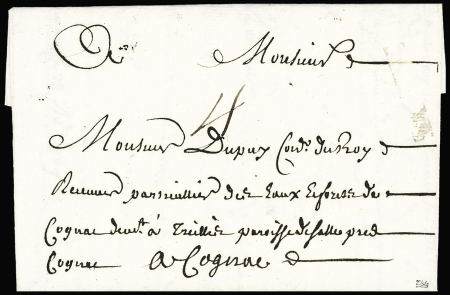 A Monsieur
4
Monsieur Dupuy Cons. du Roy
Receveur particullier des Eaux Et forests de
Cognac demt. à Treillis paroisse de Salle pres
Cognac A Cognac